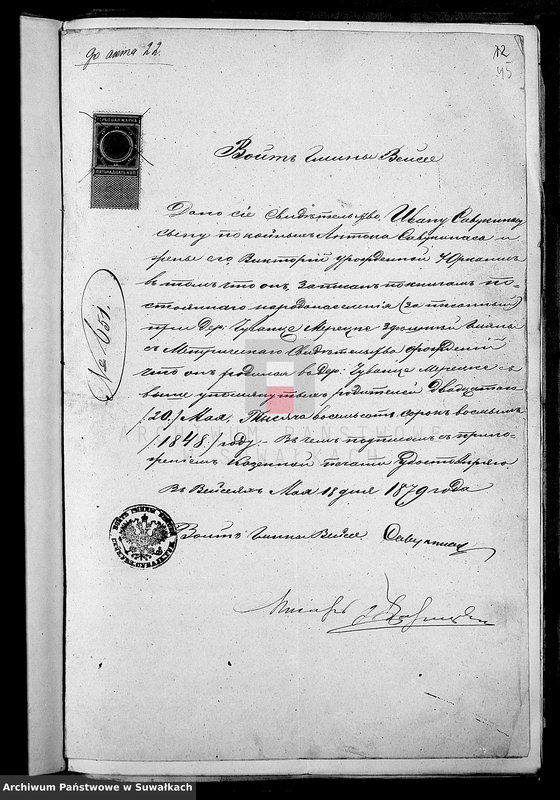 до акта 22.
12
45
ГЕРБОВАЯ МАРКА
ПЯТНАДЦАТЬ КОП
Войтъ Гмины Вейсее
Дано сіе Свидѣтельство, Ивану Савукинасу
сыну покойныхъ Антона Савукинаса и
жены его Викторіи урожденной
въ томъ что онъ, записанъ по книгамъ по-
стояннаго народонаселенія (за писанный)
при Дер. Буванце Мерецке
съ Метрическаго Свидѣтельства
что онъ родился въ Дер: Буванце Мерецке съ
выше упомянутыхъ родителей Двадцатаго
/20./ Мая, Тысяча восемьсотъ сорокъ восьмымъ
/1848./ году; - Въ чемъ подписомъ съ прило-
женіемъ Казенной печати удостовѣряю
Въ Вейсеяхъ Мая 18 дня 1879 года
№ 651.
Войтъ Гмины Вейсее Савукинас
Писарь
ARCHIWUM PAŃSTWOWE
W SUWAŁKACH
Archiwum Państwowe w Suwałkach